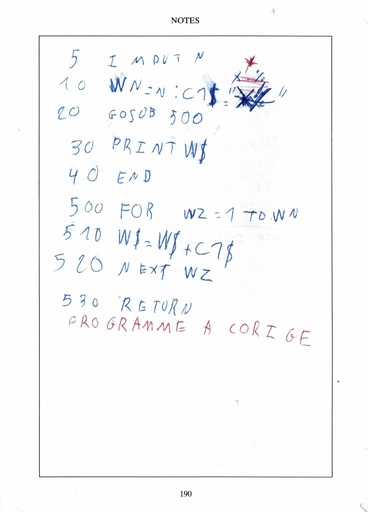 NOTES
5 INPUT N
10 WN=N:C1$="*"
20 GOSUB 500
30 PRINT W$
40 END
500 FOR WZ=1 TO WN
510 W$=W$+C1$
520 NEXT WZ
530 RETURN
PROGRAMME A CORIGE
190